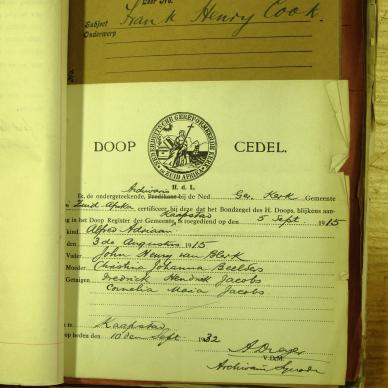 Subject
Onderwerp
Frank Henry Cook.
DOOP CEDEL.
H. d. L.
Archivaris
k, de ondergeteekende, Predikant bij de Ned Ger. Kerk Gemeente
Zuid-Afrika certificeer bij deze dat het Bondzegel des H. Doops, blijkens aan-
Kaapstad
g in het Doop Register der Gemeente, is toegediend op den 5 Sept 1915
kind Alfred Adriaan
n 3 de Augustus 1915
Vader: John Henry van Blerk
Moeder: Christina Johanna Beelders
Getuigen Fredrick Hendrik Jacobs
Cornelia Maria Jacobs
te Kaapstad
op heden den 10 den Sept 1932
A. Dreyer
V.D.M.
Archivaris Synode